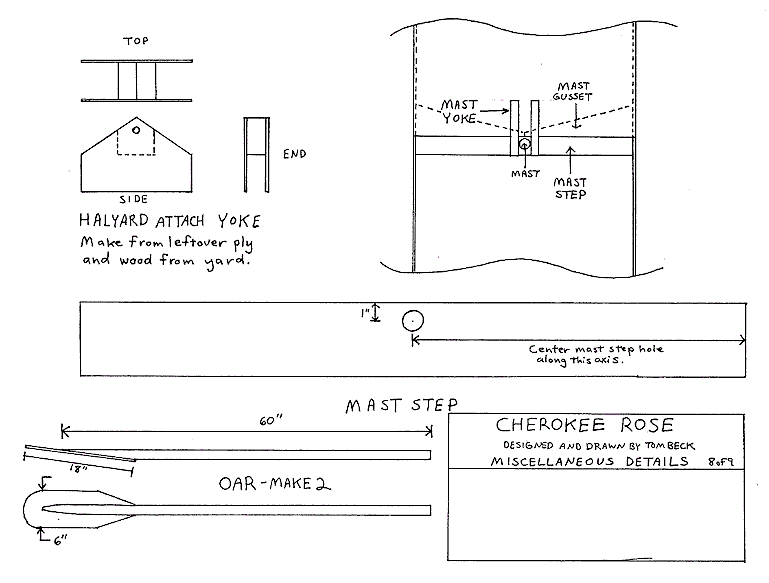 TOP
END
SIDE
HALYARD ATTACH YOKE
Make from leftover ply
and wood from yard.
MAST
YOKE
MAST
GUSSET
MAST
MAST
STEP
1"
Center mast step hole
along this axis.
MAST STEP
60"
18"
OAR-MAKE 2
6"
CHEROKEE ROSE
DESIGNED AND DRAWN BY TOM BECK
MISCELLANEOUS DETAILS 8 of 9